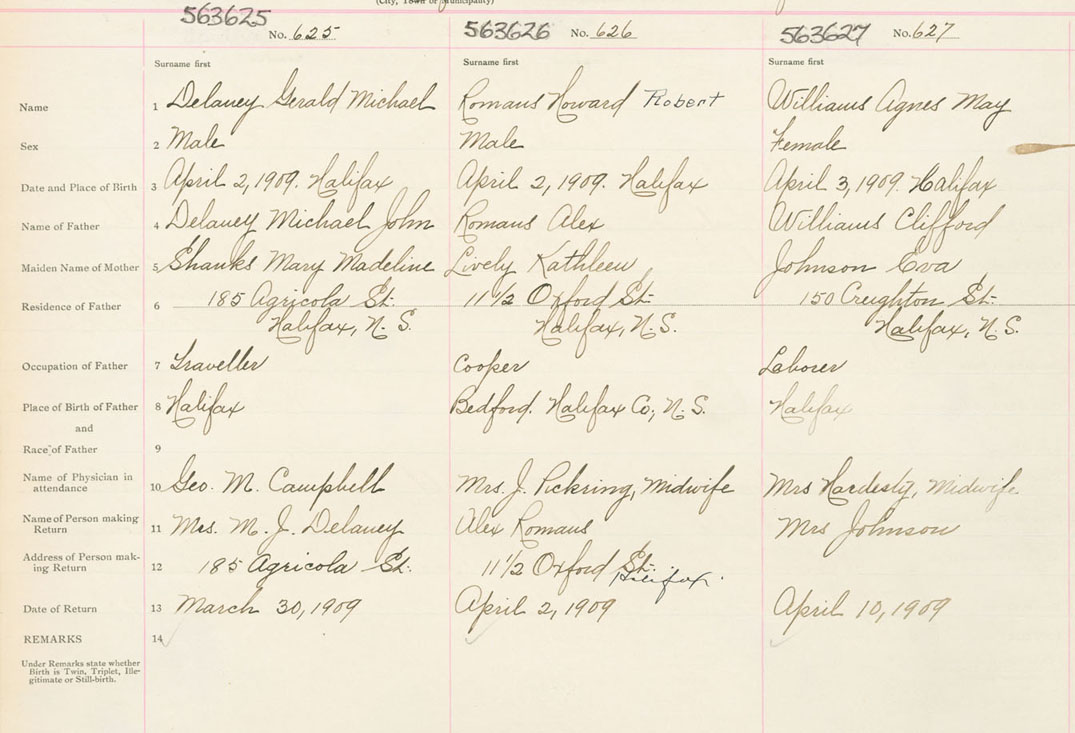 (City, Town or Municipality)
563625 No. 625 563626 No. 626 563627 No. 627
Surname first Surname first Surname first
Name 1 Delaney Gerald Michael Romans Howard Robert Williams Agnes May
Sex 2 Male Male Female
Date and Place of Birth 3 April 2, 1909. Halifax April 2, 1909. Halifax April 3, 1909. Halifax
Name of Father 4 Delaney Michael John Romans Alex Williams Clifford
Maiden Name of Mother 5 Shanks Mary Madeline Lively Kathleen Johnson Eva
Residence of Father 6 185 Agricola St. 11 1/2 Oxford St. 150 Creighton St.
Halifax, N.S. Halifax, N.S. Halifax, N.S.
Occupation of Father 7 Traveller Cooper Laborer
Place of Birth of Father 8 Halifax Bedford. Halifax Co, N.S. Halifax
and
Race of Father 9
Name of Physician in
attendance 10 Geo. M. Campbell Mrs. J. Pickring, Midwife Mrs Hardesty, Midwife
Name of Person making
Return 11 Mrs. M. J. Delaney Alex Romans Mrs Johnson
Address of Person mak-
ing Return 12 185 Agricola St. 11 1/2 Oxford St.
Halifax.
Date of Return 13 March 30, 1909 April 2, 1909 April 10, 1909
REMARKS 14
Under Remarks state whether
Birth is Twin, Triplet, Ille-
gitimate or Still-birth.